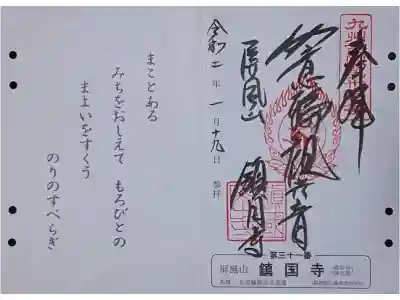 奉拝
如意輪観世音
屏風山 鎮国寺
令和二年一月十九日 参拝
第三十一番
屏風山 鎮国寺
まことある
みちをおしえて もろびとの
まよいをすくう
のりのすべらぎ